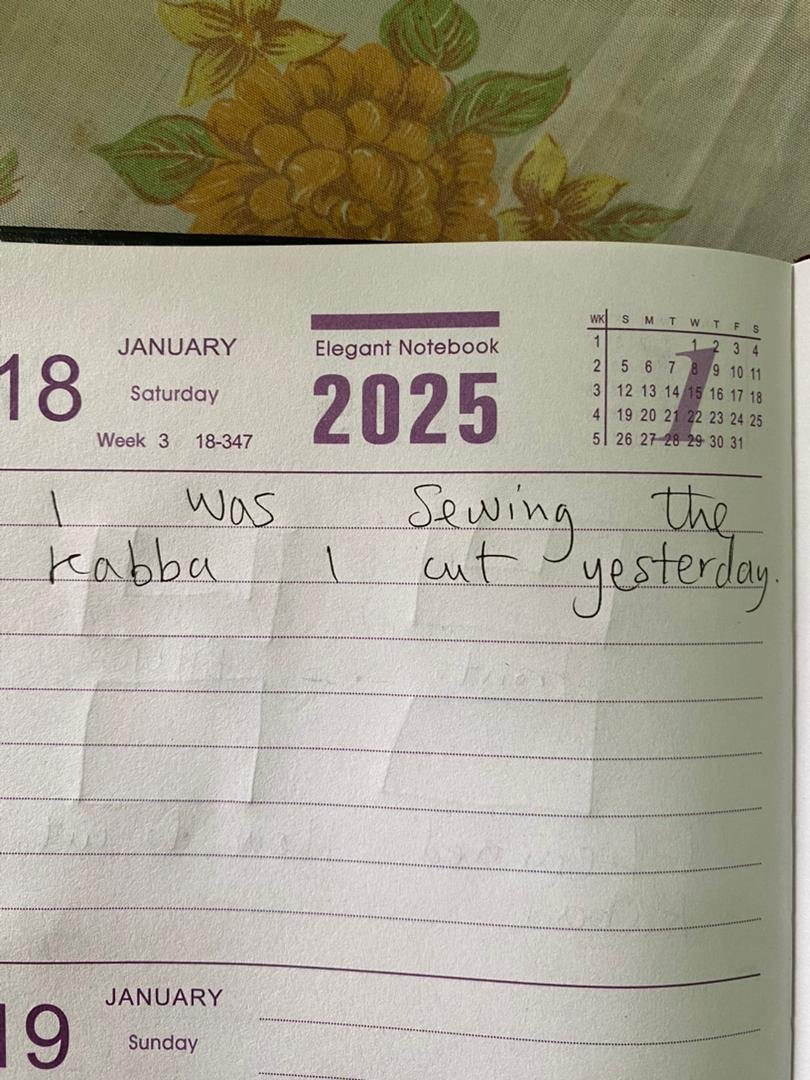 18
JANUARY
Saturday
Week 3 18-347
Elegant Notebook
2025
WK S M T W T F S
1 1 2 3 4
2 5 6 7 8 9 10 11
3 12 13 14 15 16 17 18
4 19 20 21 22 23 24 25
5 26 27 28 29 30 31
1
I was Sewing the
Kabba I cut yesterday.
19
JANUARY
Sunday